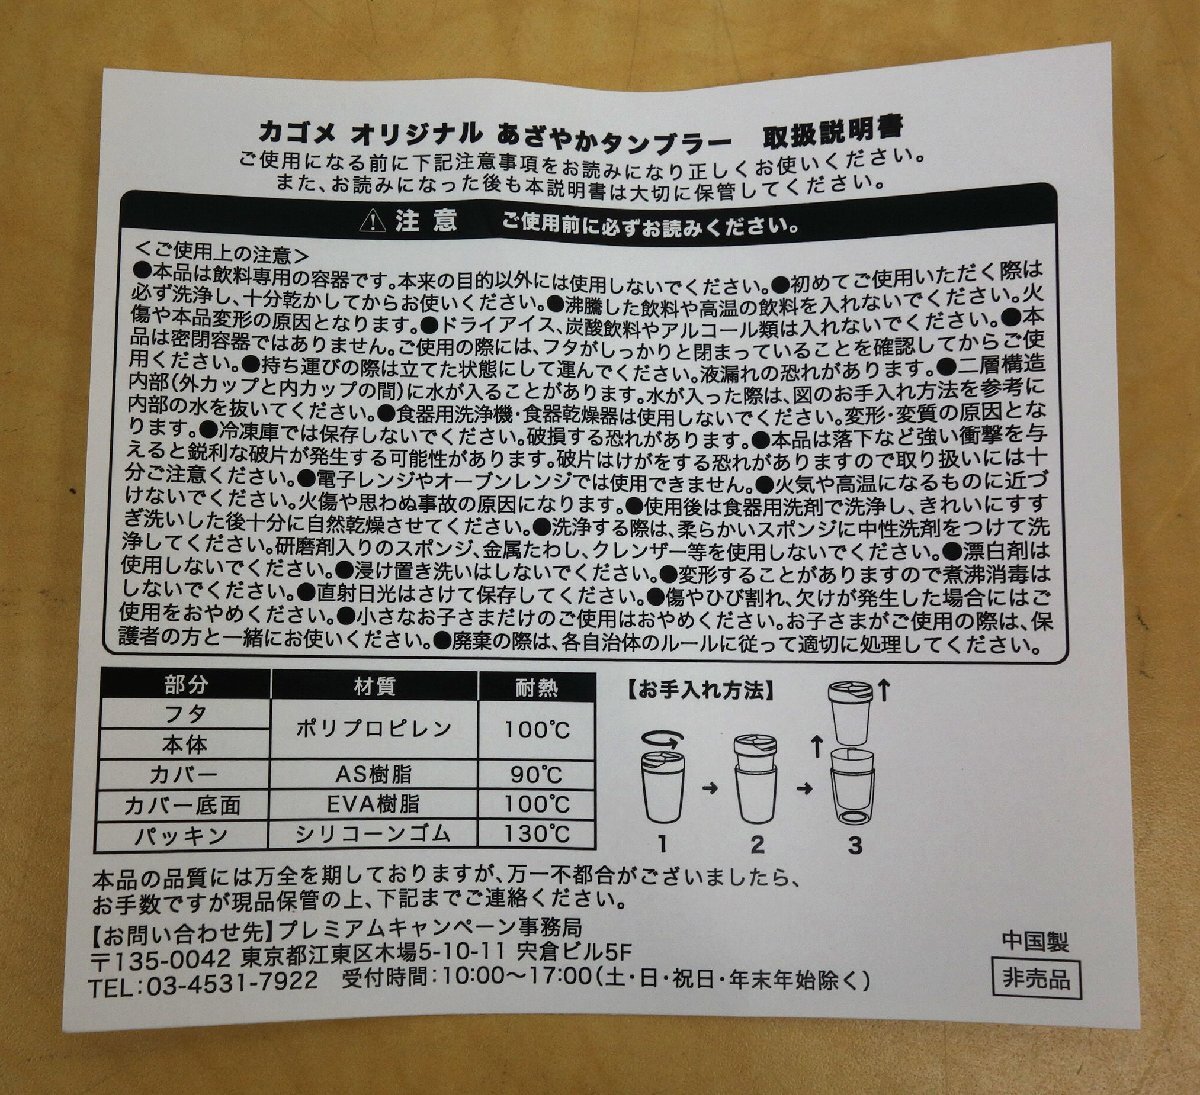 カゴメ オリジナル あざやかタンブラー 取扱説明書
ご使用になる前に下記注意事項をお読みになり正しくお使いください。
また、お読みになった後も本説明書は大切に保管してください。
⚠注意 ご使用前に必ずお読みください。
＜ご使用上の注意＞
●本品は飲料専用の容器です。本来の目的以外には使用しないでください。●初めてご使用いただく際は
必ず洗浄し、十分乾かしてからお使いください。●沸騰した飲料や高温の飲料を入れないでください。火
傷や本品変形の原因となります。●ドライアイス、炭酸飲料やアルコール類は入れないでください。●本
品は密閉容器ではありません。ご使用の際には、フタがしっかりと閉まっていることを確認してからご使
用ください。●持ち運びの際は立てた状態にして運んでください。液漏れの恐れがあります。●二層構造
内部(外カップと内カップの間)に水が入ることがあります。水が入った際は、図のお手入れ方法を参考に
内部の水を抜いてください。●食器用洗浄機・食器乾燥器は使用しないでください。変形・変質の原因とな
ります。●冷凍庫では保存しないでください。破損する恐れがあります。●本品は落下など強い衝撃を与
えると鋭利な破片が発生する可能性があります。破片はけがをする恐れがありますので取り扱いには十
分ご注意ください。●電子レンジやオーブンレンジでは使用できません。●火気や高温になるものに近づ
けないでください。火傷や思わぬ事故の原因になります。●使用後は食器用洗剤で洗浄し、きれいにすす
ぎ洗いした後十分に自然乾燥させてください。●洗浄する際は、柔らかいスポンジに中性洗剤をつけて洗
浄してください。研磨剤入りのスポンジ、金属たわし、クレンザー等を使用しないでください。●漂白剤は
使用しないでください。●浸け置き洗いはしないでください。●変形することがありますので煮沸消毒は
しないでください。●直射日光はさけて保存してください。●傷やひび割れ、欠けが発生した場合にはご
使用をおやめください。●小さなお子さまだけのご使用はおやめください。お子さまがご使用の際は、保
護者の方と一緒にお使いください。●廃棄の際は、各自治体のルールに従って適切に処理してください。
部分 材質 耐熱
フタ
ポリプロピレン 100℃
本体
カバー AS樹脂 90℃
カバー底面 EVA樹脂 100℃
パッキン シリコーンゴム 130℃
【お手入れ方法】
1 2 3
本品の品質には万全を期しておりますが、万一不都合がございましたら、
お手数ですが現品保管の上、下記までご連絡ください。
【お問い合わせ先】プレミアムキャンペーン事務局
〒135-0042 東京都江東区木場5-10-11 宍倉ビル5F
TEL:03-4531-7922 受付時間:10:00〜17:00(土・日・祝日・年末年始除く)
中国製
非売品